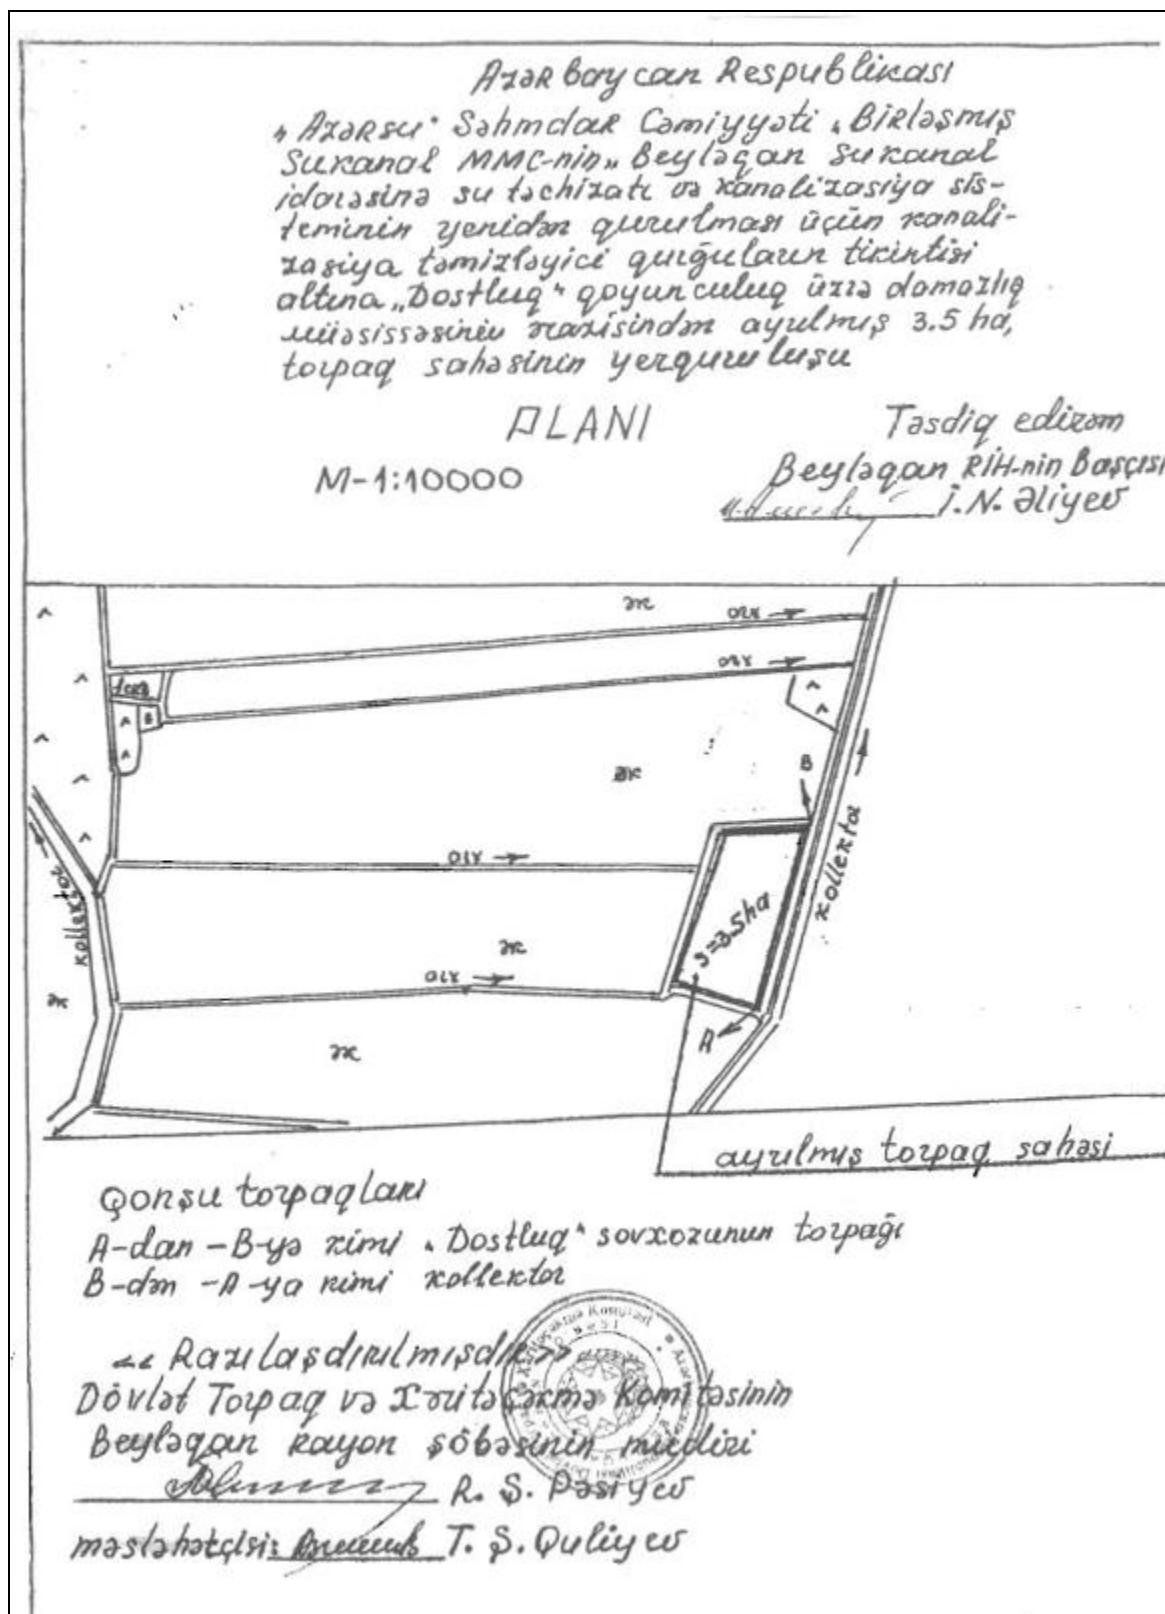 Azərbaycan Respublikası
"Azərsu" Səhmdar Cəmiyyəti "Birləşmiş
Sukanal MMC-nin" Beyləqan sukanal
idarəsinə su təchizatı və kanalizasiya sis-
teminin yenidən qurulması üçün kanali-
zasiya təmizləyici qurğuların tikintisi
altına "Dostluq" qoyunculuq üzrə damazlıq
müəssisəsinin ərazisindən ayrılmış 3.5 ha,
torpaq sahəsinin yerquruluşu
PLANI
Təsdiq edirəm
M-1:10000
Beyləqan RİH-nin Başçısı
İ.N. Əliyev
ək
ək
ək
ək
ək
B
B
kollektor
kollektor
S=3.5ha
A
ayrılmış torpaq sahəsi
Qonşu torpaqları
A-dan -B-yə kimi "Dostluq" sovxozunun torpağı
B-dən -A-ya kimi kollektor
<< Razılaşdırılmışdır>>
Dövlət Torpaq və Xəritəçəkmə Komitəsinin
Beyləqan rayon şöbəsinin müdiri
R. Ş. Paşiyev
məsləhətçisi: T. Ş. Quliyev